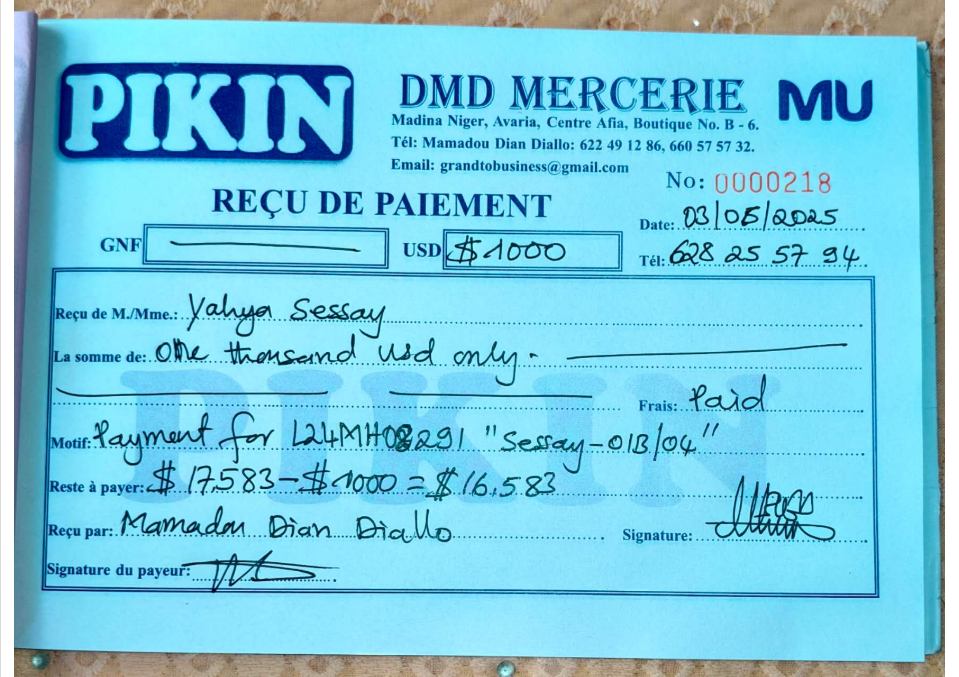 PIKIN
DMD MERCERIE
MU
Madina Niger, Avaria, Centre Afia, Boutique No. B - 6.
Tél: Mamadou Dian Diallo: 622 49 12 86, 660 57 57 32.
Email: grandtobusiness@gmail.com
No: 0000218
REÇU DE PAIEMENT
Date: 03/05/2025
GNF USD $1000
Tél: 628 25 57 94
Reçu de M./Mme.: Yahya Sessay
La somme de: One thousand usd only.
Frais: Paid
Motif: Payment for L24MH08291 "Sessay-013/04"
Reste à payer: $17,583-$1000 = $16,583
Reçu par: Mamadou Dian Diallo Signature:
Signature du payeur:
PIKIN